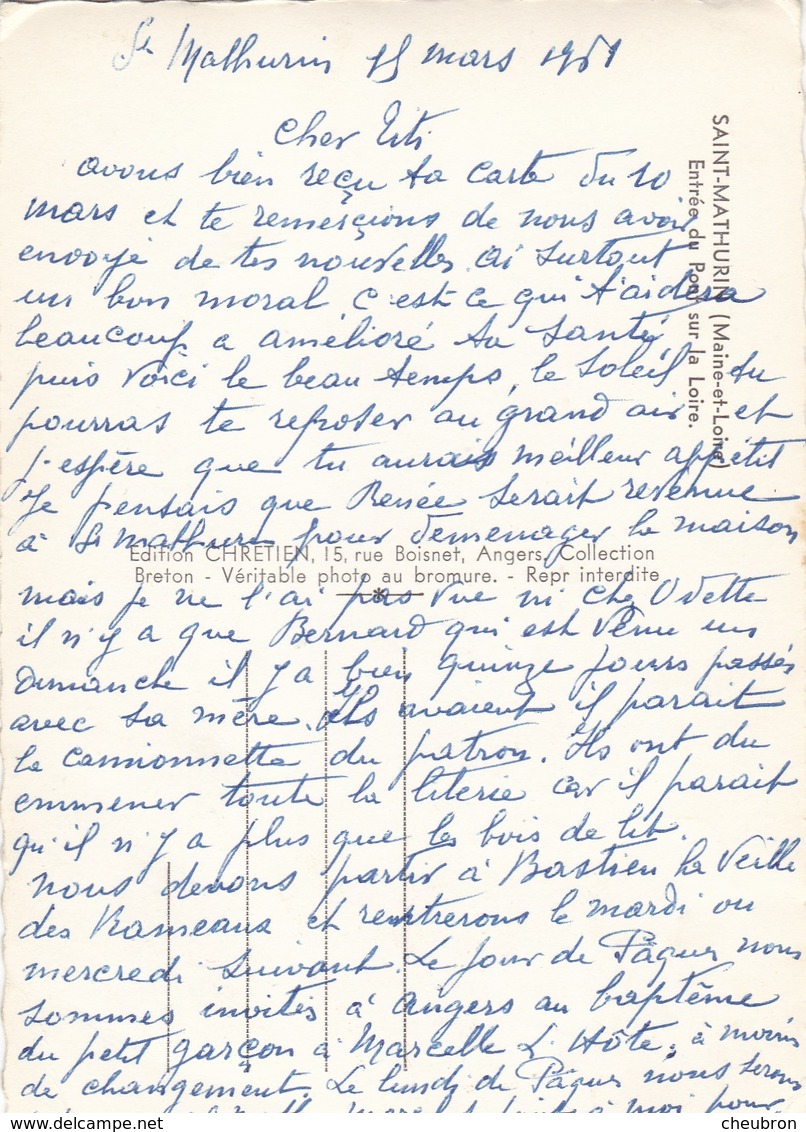 St Mathurin 15 mars 1961
Cher Titi
avons bien reçu ta carte du 10
mars et te remerçions de nous avoir
envoyé de tes nouvelles. ai surtout
un bon moral c'est ce qui t'aidera
beaucoup a amélioré ta santé
puis voici le beau temps, le soleil tu
pourras te reposer au grand air et
j'espère que tu aurais meilleur appétit
Je pensais que Renée serait revenue
à St Mathurin pour demenager la maison
mais je ne l'ai pas vue ni chez Odette
il n'y a que Bernard qui est venu un
Dimanche il y a bien quinze jours passés
avec sa mère. Ils avaient il parait
la camionnette du patron. Ils ont du
emmener toute la literie car il parait
qu'il n'y a plus que les bois de lit.
nous devons partir à Bastien la veille
des Rameaux et rentrerons le mardi ou
mercredi suivant. Le jour de Pâques nous
sommes invités à Angers au baptême
du petit garçon à Marcelle L'Hôte, à moins
de changement. Le lundi de Pâques nous serons
à moi pour
SAINT-MATHURIN (Maine-et-Loire)
Entrée du Pont sur la Loire.
Edition CHRETIEN, 15, rue Boisnet, Angers. Collection
Breton - Véritable photo au bromure. - Repr interdite
cheubron